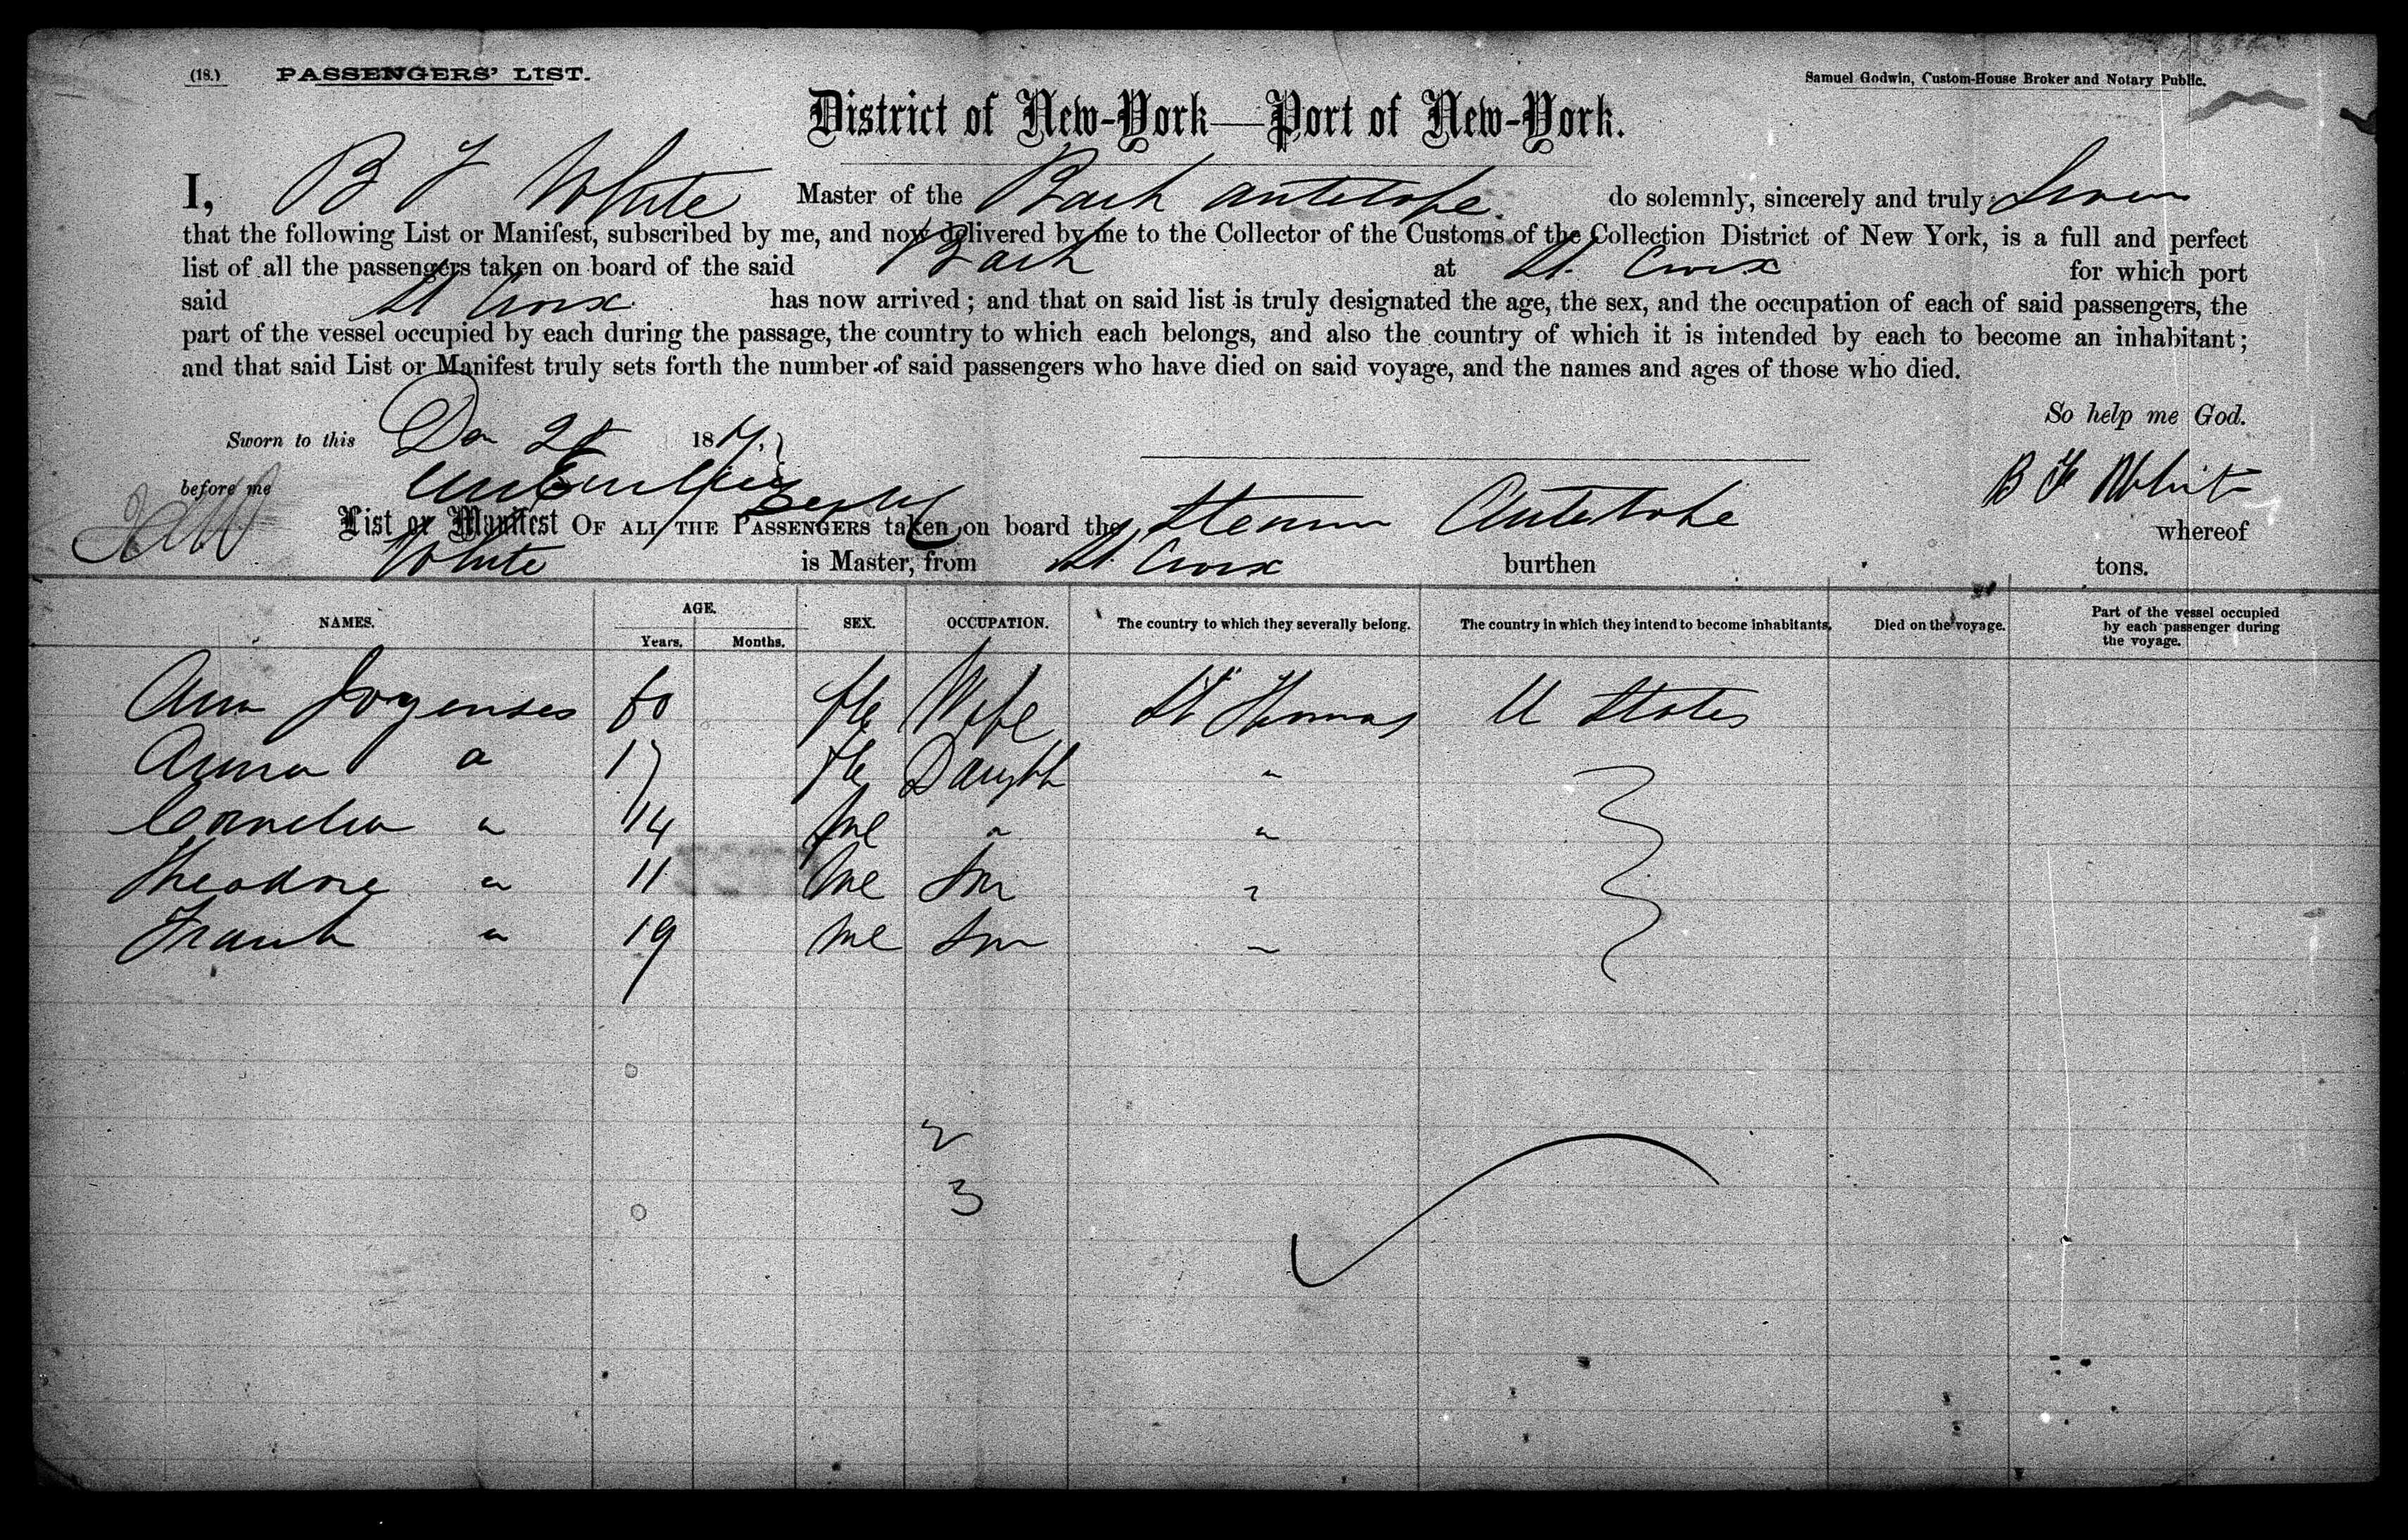 (18.) PASSENGERS' LIST. Samuel Godwin, Custom-House Broker and Notary Public.
District of New-York—Port of New-York.
I, B F White Master of the Bark Antelope do solemnly, sincerely and truly swear
that the following List or Manifest, subscribed by me, and now delivered by me to the Collector of the Customs of the Collection District of New York, is a full and perfect
list of all the passengers taken on board of the said Bark at St. Croix for which port
said St Croix has now arrived; and that on said list is truly designated the age, the sex, and the occupation of each of said passengers, the
part of the vessel occupied by each during the passage, the country to which each belongs, and also the country of which it is intended by each to become an inhabitant;
and that said List or Manifest truly sets forth the number of said passengers who have died on said voyage, and the names and ages of those who died.
So help me God.
Sworn to this 18
before me B F White
List or Manifest OF ALL THE PASSENGERS taken on board the Antelope whereof
White is Master, from St. Croix burthen tons.
NAMES. AGE. SEX. OCCUPATION. The country to which they severally belong. The country in which they intend to become inhabitants. Died on the voyage. Part of the vessel occupied by each passenger during the voyage.
Years. Months.
Ann Jorgenses fle Wife St Thomas U States
Anna " 17 fle Daughtr "
Cornelia " 14 fme " "
Theodore " 11 me Son "
Frank " 19 me Son "
2
3